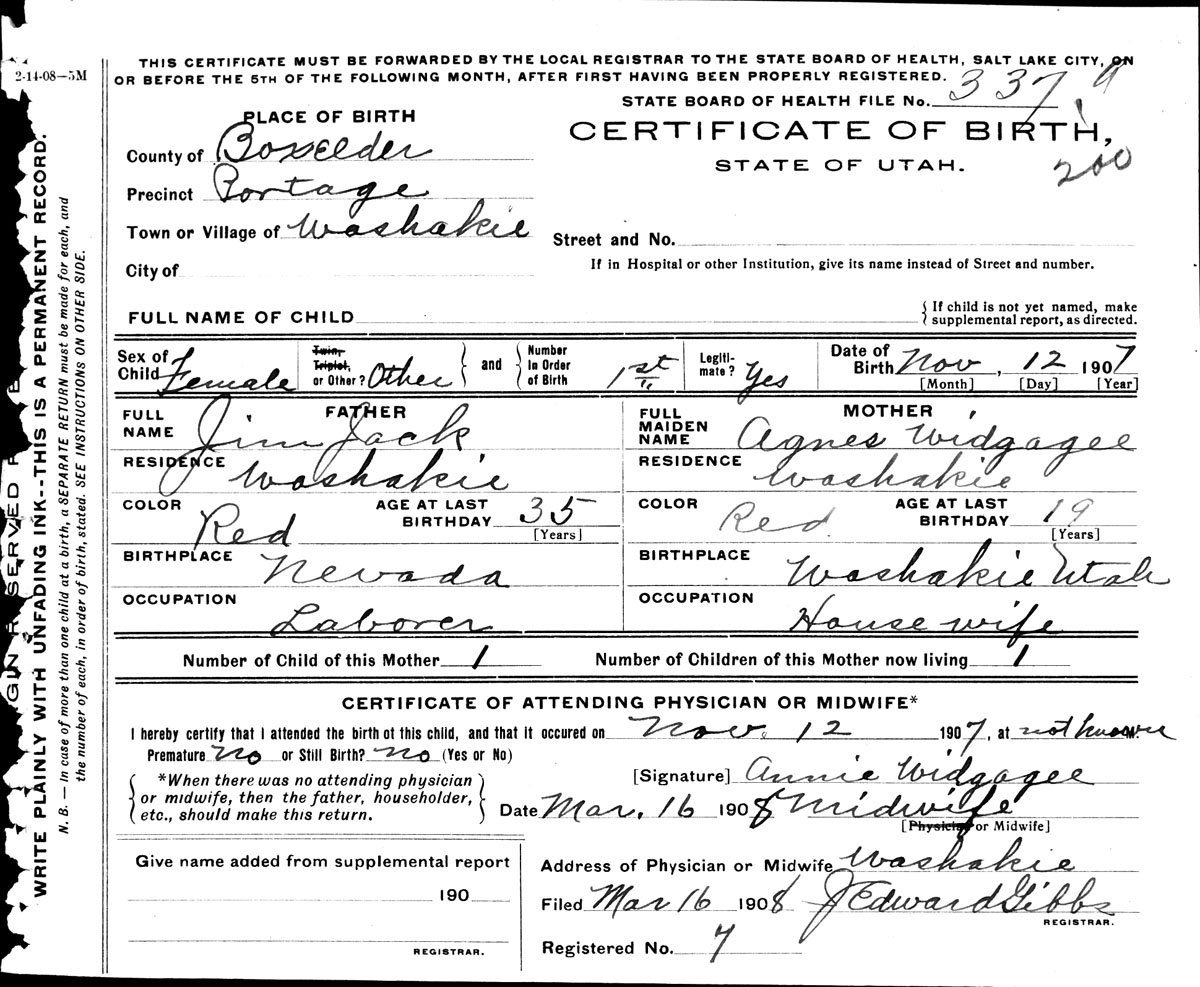 THIS CERTIFICATE MUST BE FORWARDED BY THE LOCAL REGISTRAR TO THE STATE BOARD OF HEALTH, SALT LAKE CITY, ON
2-14-08—5M
OR BEFORE THE 5TH OF THE FOLLOWING MONTH, AFTER FIRST HAVING BEEN PROPERLY REGISTERED.
STATE BOARD OF HEALTH FILE No. 337 9
PLACE OF BIRTH
CERTIFICATE OF BIRTH,
County of Boxelder
STATE OF UTAH.
200
Precinct Portage
Town or Village of Washakie
Street and No.
City of
If in Hospital or other Institution, give its name instead of Street and number.
FULL NAME OF CHILD
{ If child is not yet named, make
supplemental report, as directed.
Sex of Child Female
Twin, Triplet, or Other? Other
and
Number In Order of Birth 1st
Legiti-mate? Yes
Date of Birth Nov, 12 1907
[Month] [Day] [Year]
FATHER
FULL NAME Jim Jack
RESIDENCE Washakie
COLOR Red
AGE AT LAST BIRTHDAY 35
[Years]
BIRTHPLACE Nevada
OCCUPATION Laborer
MOTHER
FULL MAIDEN NAME Agnes Widgagee
RESIDENCE Washakie
COLOR Red
AGE AT LAST BIRTHDAY 19
[Years]
BIRTHPLACE Washakie Utah
OCCUPATION House wife
Number of Child of this Mother 1
Number of Children of this Mother now living 1
CERTIFICATE OF ATTENDING PHYSICIAN OR MIDWIFE*
I hereby certify that I attended the birth of this child, and that it occured on Nov. 12 1907, at not known
Premature No or Still Birth? No (Yes or No)
*When there was no attending physician
or midwife, then the father, householder,
etc., should make this return.
[Signature] Annie Widgagee
Date Mar. 16 1908 Midwife
[Physician or Midwife]
Give name added from supplemental report
190
REGISTRAR.
Address of Physician or Midwife Washakie
Filed Mar 16 1908 J Edward Gibbs
REGISTRAR.
Registered No. 7
WRITE PLAINLY WITH UNFADING INK--THIS IS A PERMANENT RECORD.
N. B. — In case of more than one child at a birth, a SEPARATE RETURN must be made for each, and
the number of each, in order of birth, stated. SEE INSTRUCTIONS ON OTHER SIDE.